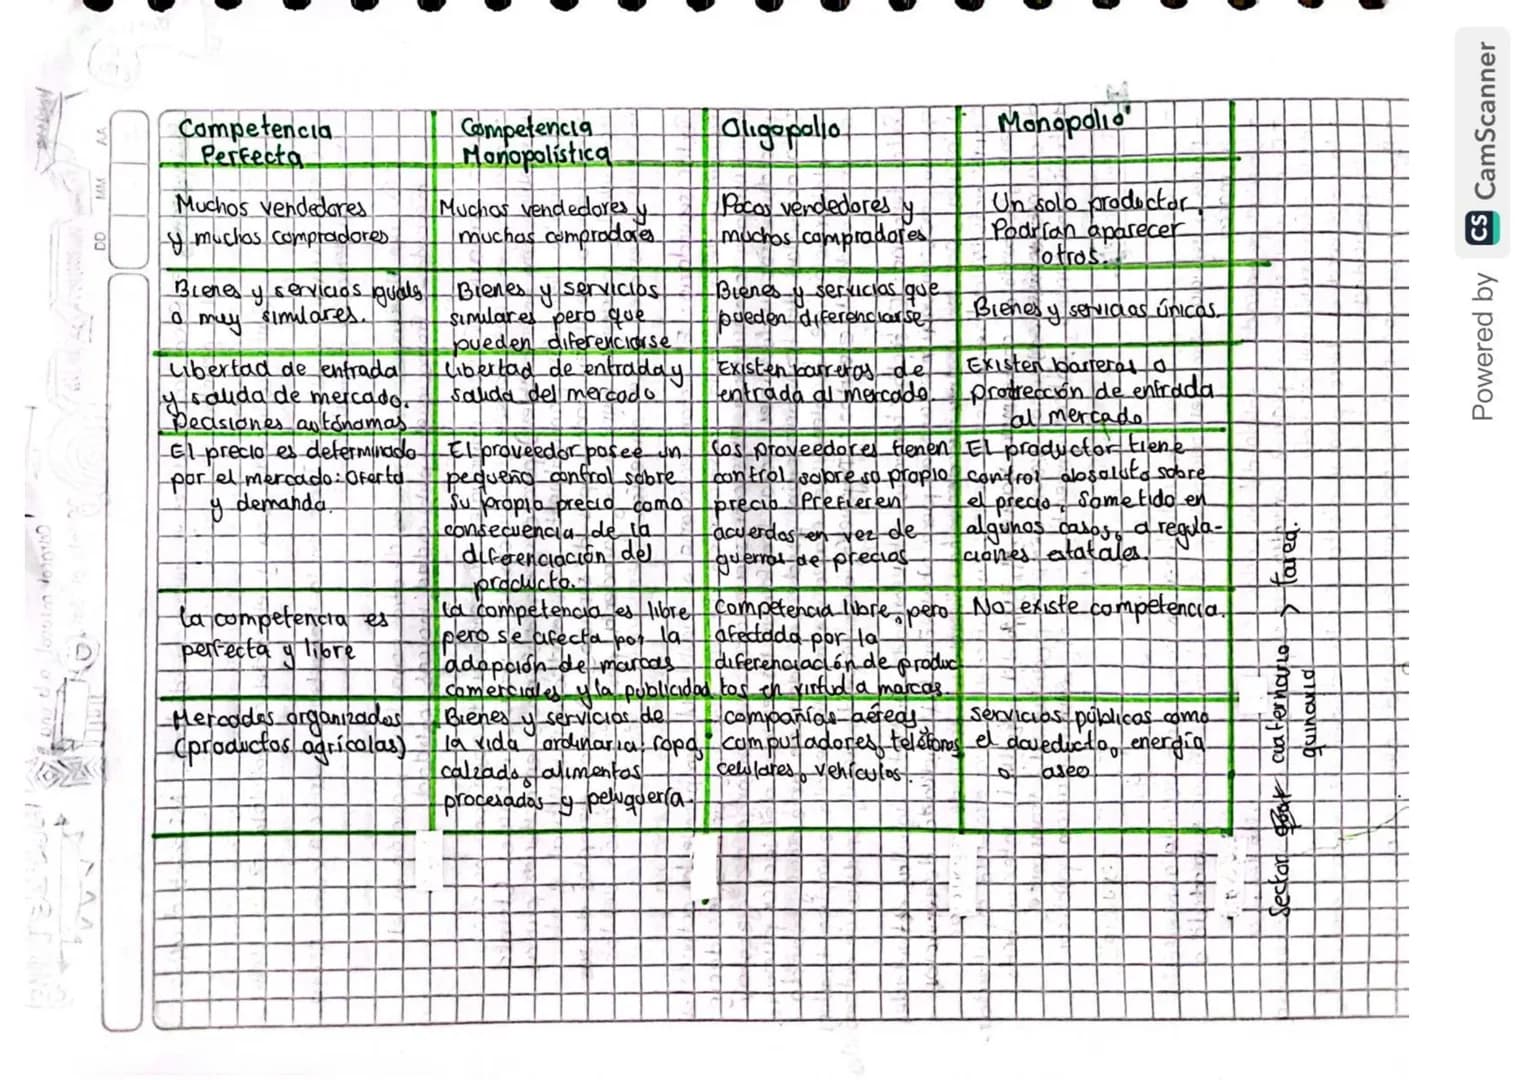 Competencia
Perfecta
Competencia
Monopolística
Oligopolio
Monopolio
Muchos vendedores
y muchos compradores
Muchos vendedores y
muchos compradores
Pocos vendedores y
muchos compradores
Un solo productor,
Podrían aparecer
otros.
Bienes y servicios iguals
o muy similares.
Bienes y servicios
similares pero que
pueden diferenciarse
Bienes y servicios que
pueden diferenciarse
Bienes y servicios únicos.
Libertad de entrada
y salida de mercado.
Decisiones autónomas
Libertad de entrada y
salida del mercado
Existen barreras de
entrada al mercado.
Existen barreras o
protrección de entrada
al mercado
El precio es determinado
por el mercado: Oferta
y demanda.
El proveedor posee un
pequeño control sobre
su propio precio como
consecuencia de la
diferenciación del
producto.
Los proveedores tienen
control sobre su propio
precio. Prefieren
acuerdos en vez de
guerras de precios
El productor tiene
control absoluto sobre
el precio, sometido en
algunos casos, a regula-
ciones estatales.
La competencia es
perfecta y libre
La competencia es libre
pero se afecta por la
adopción de marcas
comerciales y la publicidad
Competencia libre, pero
afectada por la
diferenciación de produc
tos en virtud a marcas.
No existe competencia.
Mercados organizados
(productos agrícolas)
Bienes y servicios de
la vida ordinaria: ropa,
calzado, alimentos
procesados y peluquería.
compañías aéreas
computadores, teléfonos
celulares, vehículos.
servicios públicos como
el acueducto, energía
o aseo
Sector cuaternario > tarea.
quinario
DD MM AA
Powered by CS CamScanner